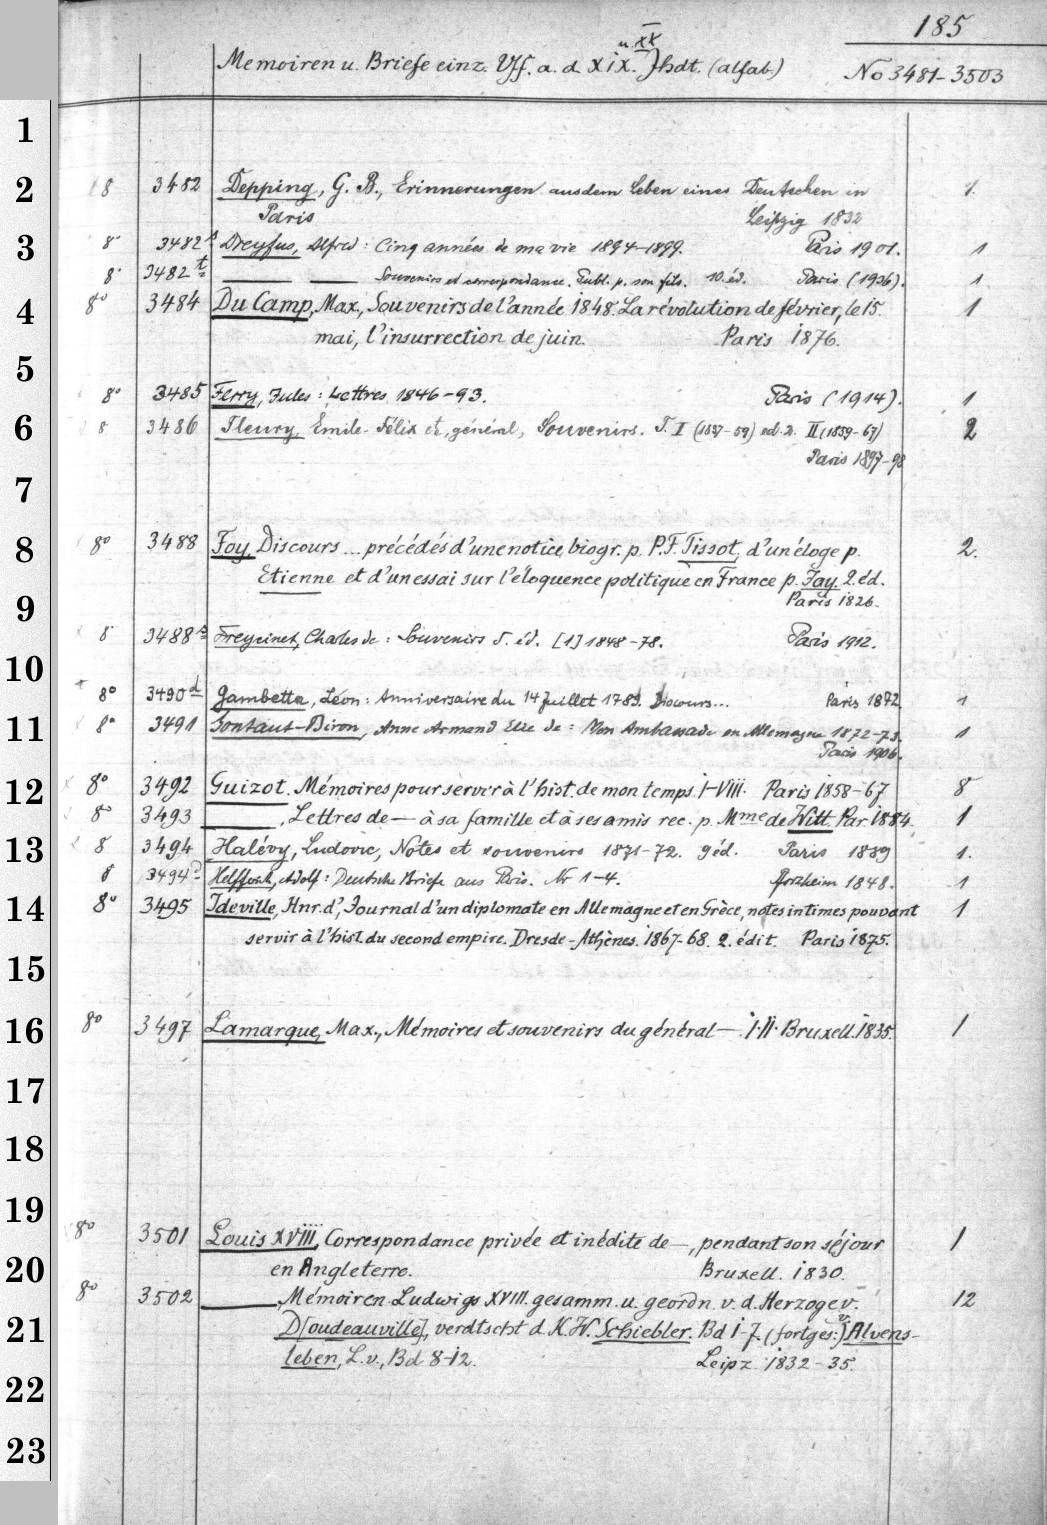 185
u. XX
Memoiren u. Briefe einz. Vff. a. d. XIX. Jhdt. (alfab.) No 3481-3503
1
2 8 3482 Depping, G. B., Erinnerungen aus dem Leben eines Deutschen in 1.
Paris Leipzig 1832
3 8° 3482 a Dreyfus, Alfred: Cinq années de ma vie 1894-1899. Paris 1901. 1
8° 3482 t Souvenirs et correspondance. Publ. p. son fils. 10. éd. Paris (1936). 1
4 8° 3484 Du Camp, Max., Souvenirs de l'année 1848. La révolution de février, le 15. 1
mai, l'insurrection de juin. Paris 1876.
5
8° 3485 Ferry, Jules: Lettres 1846-93. Paris (1914). 1
6 8 3486 Fleury, Emile-Félix cte, général, Souvenirs. T. I (1837-59) ed. 2. II (1859-67) 2
Paris 1897-98
7
8 8° 3488 Foy, Discours ... précédés d'une notice biogr. p. P. F. Tissot, d'un éloge p. 2.
Etienne et d'un essai sur l'éloquence politique en France p. Jay. 2. éd.
9 Paris 1826.
8° 3488 a Freycinet, Charles de: Souvenirs 5. éd. [1] 1848-78. Paris 1912.
10
8° 3490 d Gambetta, Léon: Anniversaire du 14 Juillet 1789. Discours... Paris 1872 1
11 8° 3491 Gontaut-Biron, Anne Armand Elie de: Mon Ambassade en Allemagne 1872-73. 1
Paris 1906.
12 8° 3492 Guizot. Mémoires pour servir à l'hist. de mon temps. I-VIII. Paris 1858-67 8
8° 3493 , Lettres de — à sa famille et à ses amis rec. p. Mme de Witt. Par. 1884. 1
13 8 3494 Halévy, Ludovic, Notes et souvenirs 1871-72. 9 éd. Paris 1889 1.
8 3494 Helfferich, Adolf: Deutsche Briefe aus Paris. Nr 1-4. Pforzheim 1848. 1
14 8° 3495 Ideville, Hnr. d', Journal d'un diplomate en Allemagne et en Grèce, notes intimes pouvant 1
servir à l'hist. du second empire. Dresde-Athènes. 1867-68. 2. édit. Paris 1875.
15
16 8° 3497 Lamarque, Max., Mémoires et souvenirs du général —. I. II. Bruxell. 1835. 1
17
18
19
8° 3501 Louis XVIII, Correspondance privée et inédite de —, pendant son séjour 1
20 en Angleterre. Bruxell. 1830.
8° 3502 , Mémoiren Ludwigs XVIII. gesamm. u. geordn. v. d. Herzoge v. 12
21 D[oudeauville], verdtscht d. K. H. Schiebler. Bd 1-7. (fortges:) v. Alvens-
leben, L. v., Bd 8-12. Leipz. 1832-35.
22
23